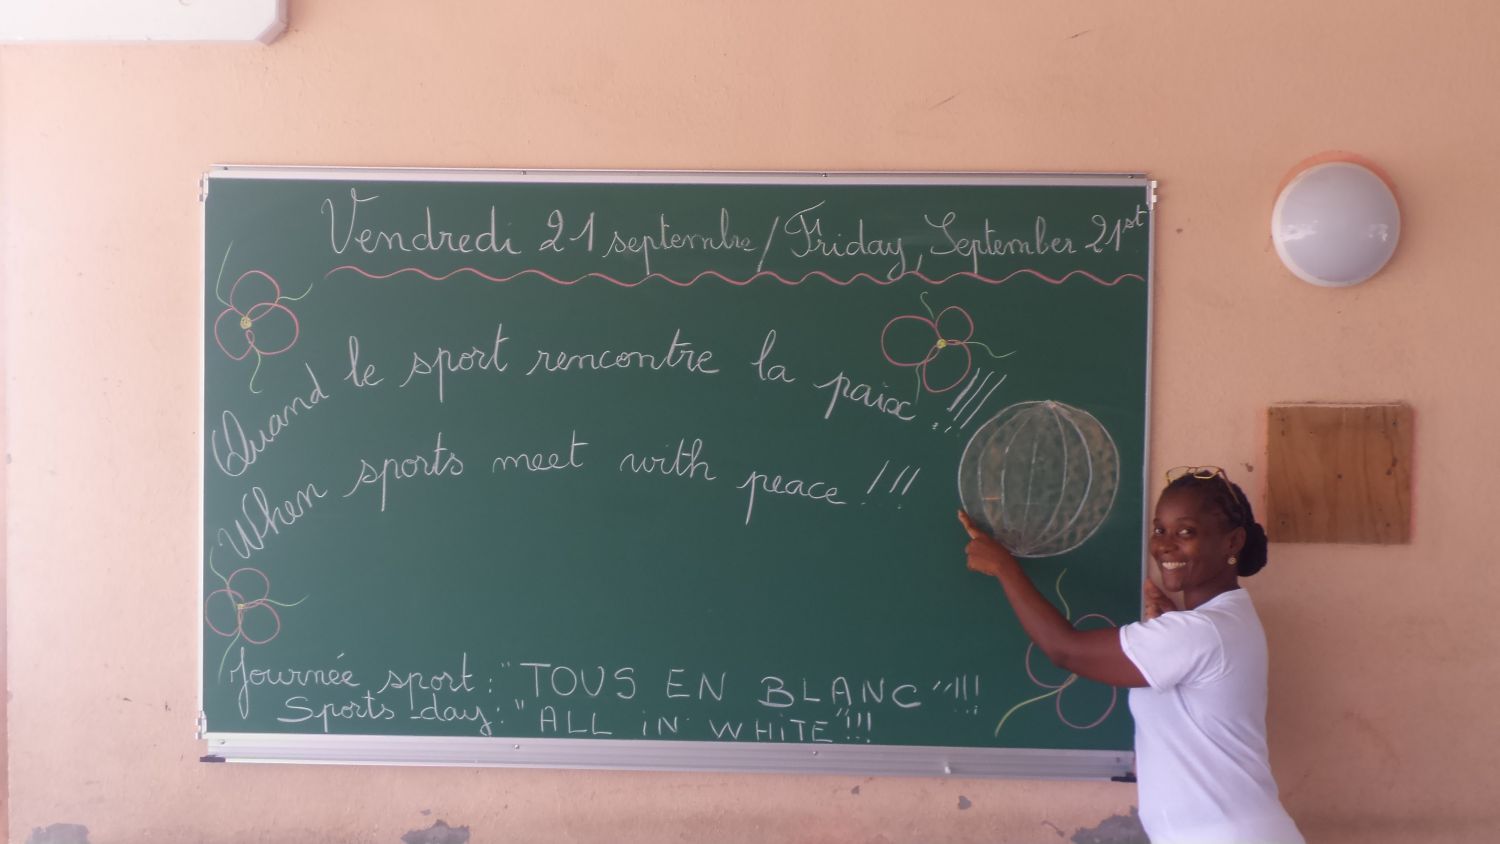 Vendredi 21 septembre / Friday, September 21st
Quand le sport rencontre la paix !!!
When sports meet with peace !!!
Journée sport : "TOUS EN BLANC"!!!
Sports-day : "ALL iN WHiTE"!!!